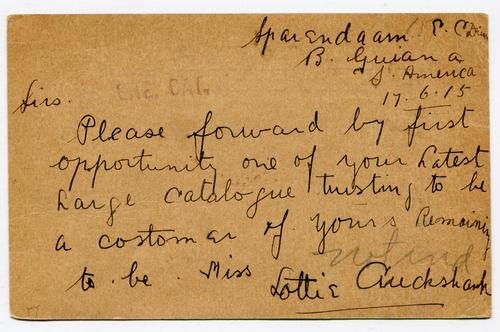 Sparendaam E. C.
B. Guiana
S. America
17.6.15
Sirs.
Please forward by first
opportunity one of your Latest
Large Catalogue trusting to be
a costomer of yours Remaining
to be Miss
Lottie Cruckshank